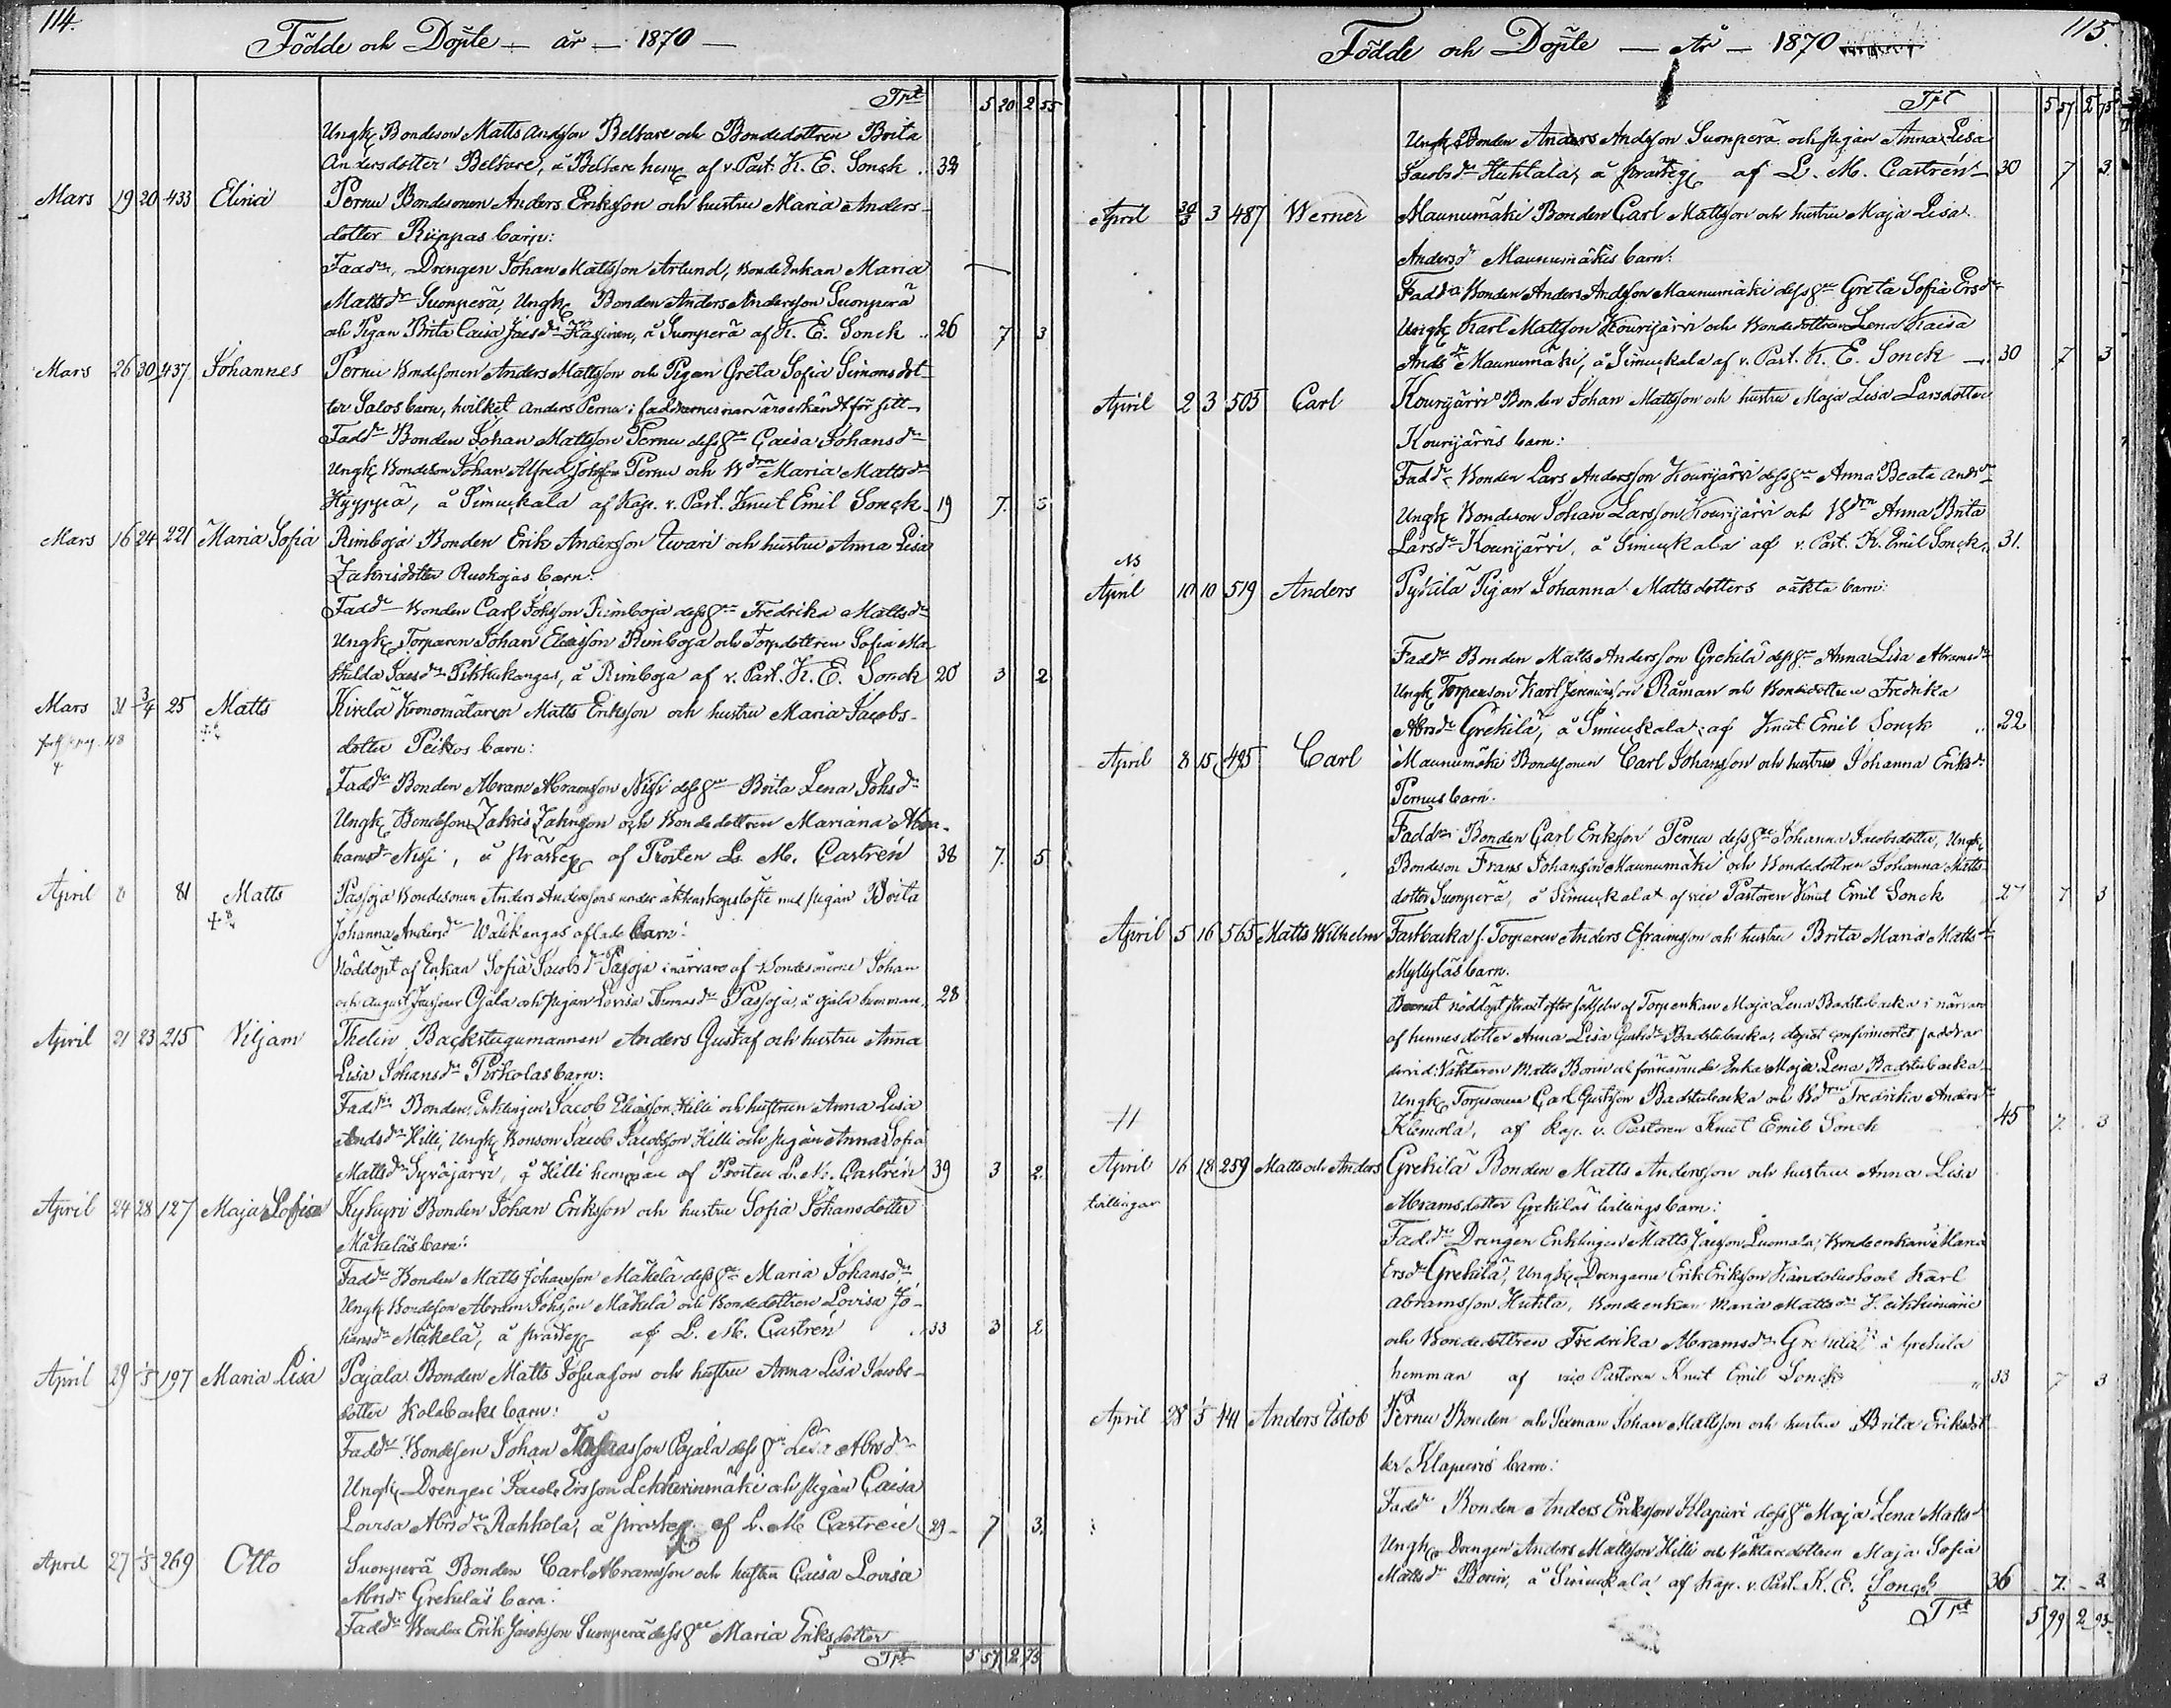 114.
Födde och Döpte — år — 1870 —
Trpt 5 20 2 55
Ungk Bondeson Matts Andsson Belkare och Bondedottren Brita
Andersdotter Belkare, å Belkare hem af v. Past. K. E. Sonck .. 32
Mars 19 20 433 Elina Pernu Bondesonen Anders Eriksson och hustru Maria Anders-
dotter Riippas barn:
Fadd Drengen Johan Mattsson Arlund, Bonde Enkan Maria
Mattsdr Suonperä, Ungk Bonden Anders Andersson Suonperä
och Pigan Brita Caisa Jacsdr Kaspinen, å Suonperä af K. E. Sonck .. 26 7 3
Mars 26 30 437 Johannes Pernu Bondesonen Anders Mattsson och Pigan Greta Sofia Simonsdot-
ter Salos barn, hvilket Anders Pernu i faddrarnes närvaro erkändt för sitt
Fadd Bonden Johan Mattsson Pernu dess h Caisa Johansdr
Ungk Bondeson Johan Alfred Johsson Pernu och Bdrn Maria Mattsdr
Hyyppä, å Simuckala af Kap. v. Past. Knut Emil Sonck 19 7. 3
Mars 16 24 221 Maria Sofia Rimboja Bonden Erik Andersson Uvari och hustru Anna Lisa
Zakrisdotter Ruskojas barn:
Fadd Bonden Carl Johsson Rimboja dess h Fredrika Mattsdr
Ungk Torparen Johan Eliasson Rimboja och Torpdottren Sofia Ma-
thilda Jacsdr Pihkukangas, å Rimboja af v. Past. K. E. Sonck 20 3 2
Mars 31 3/4 25 Matts Kivelä Kronomätaren Matts Eriksson och hustru Maria Jacobs-
dotter Peikos barn:
Fadd Bonden Abram Abramsson Nissi dess h Brita Lena Johsdr
Ungk Bondeson Zakris Zakrisson och Bondedottren Mariana Abra-
hamsdr Nissi, å prästeg af Prosten L. M. Castrén 38 7. 5
April 8 81 Matts Passoja Bondesonen Anders Anderssons under äktenskapslöfte med pigan Brita
Johanna Andersdr Waikangas aflade barn:
Nöddöpt af Enkan Sofia Jacobsdr Pasoja i närvaro af Bondesönerne Johan
och August Jacssöner Ojala och pigan Lovisa Thomasdr Passoja, å Ojala hemman. 28
April 21 23 215 Viljam Thelin Backstugumannen Anders Gustaf och hustru Anna
Lisa Johansdr Pirkolas barn:
Fadd Bonden, Enklingen Jacob Eliasson Hilli och hustrun Anna Lisa
Andsdr Hilli, Ungk Bonson Jacob Jacobsson Hilli och pigan Anna Sofia
Mattsdr Syväjärvi, å Hilli hemman af Prosten L. M. Castrén 39 3 2.
April 24 28 127 Maja Sofia Kyhyri Bonden Johan Eriksson och hustru Sofia Johansdotter
Mäkeläs barn:
Fadd Bonden Matts Johansson Mäkelä dess h Maria Johansdr
Ungk Bondeson Abram Johsson Mäkelä och Bondedottren Lovisa Jo-
hansdr Mäkelä, å prästeg af L. M. Castrén .. 33 3 2
April 29 1/5 197 Maria Lisa Pajala Bonden Matts Josuasson och hustru Anna Lisa Jacobs-
dotter Kolabacks barn:
Fadd Bondeson Johan Josuasson Pajala dess h Lisa Abrsdr
Ungk Drengen Jacob Ersson Lehterinmäki och pigan Caisa
Lovisa Abrsdr Rahkola, å prästeg af L. M. Castrén 29 7 3.
April 27 1/5 269 Otto Suonperä Bonden Carl Abramsson och hustru Caisa Lovisa
Abrsdr Grekeläs barn:
Fadd Bonden Erik Jacobsson Suonperä dess h Maria Eriksdotter
Trpt 5 57 2 75
115.
Födde och Döpte — År — 1870
Trpt 5 57 2 75
Ungk Bonden Anders Andsson Suonperä och pigan Anna Lisa
Jacobsdr Huhtala, å prästeg af L. M. Castrén 30 7 3.
April 30/3 3 487 Werner Maunumäki Bonden Carl Mattsson och hustru Maja Lisa
Andersdr Maunumäkis barn:
Fadd Bonden Anders Andsson Maunumäki dess h Greta Sofia Ersdr
Ungk Karl Mattsson Kourijärvi och Bondedottren Lena Kaisa
Andsdr Maunumäki, å Simuckala af v. Past. K. E. Sonck —. 30 7 3
April 2 3 505 Carl Kourijärvi Bonden Johan Mattsson och hustru Maja Lisa Larsdotter
Kourijärvis barn:
Fadd Bonden Lars Andersson Kourijärvi dess h Anna Beata Andsdr
Ungk Bondeson Johan Larsson Kourijärvi och Bdrn Anna Brita
Larsdr Kourijärvi, å Simuckala af v. Past. K. Emil Sonck. 31.
April 10 10 519 Anders Pykilä Pigan Johanna Mattsdotters oäkta barn:
Fadd Bonden Matts Andersson Grekilä dess h Anna Lisa Abramsdr
Ungk Torpareson Karl Jeremiasson Råman och Bondedottren Fredrika
Abrsdr Grekilä, å Simuckala af Knut Emil Sonck .. 22
April 8 15 425 Carl Maunumäki Bondesonen Carl Johansson och hustru Johanna Eriksdr
Pernus barn:
Fadd Bonden Carl Eriksson Pernu dess h Johanna Jacobsdotter, Ungk
Bondeson Frans Johansson Maunumäki och Bondedottren Johanna Matts-
dotter Suonperä, å Simuckala af vice Pastoren Knut Emil Sonck 27 7 3
April 5 16 565 Matts Wilhelm Fastbacka f. Torparen Anders Efraimsson och hustru Brita Maria Mattsdr
Myllyläs barn.
Barnet nöddöpt straxt efter födseln af Torpenkan Maja Lena Badstubacka i närvaro
af hennes dotter Anna Lisa Gustsdr Badstubacka, dopet confirmertet faddrar
dervid: Väktaren Matts Borin och förenämnda Enka Maja Lena Badstubacka
Ungk Torpsonen Carl Gustsson Badstubacka och Bdrn Fredrika Andersdr
Klemola, af Kap. v. Pastoren Knut Emil Sonck 45 7. 3
April 16 18 259 Matts och Anders Grekilä Bonden Matts Andersson och hustru Anna Lisa
tvillingar Abramsdotter Grekiläs tvillings barn:
Fadd Drengen Enklingen Matts Jacsson Luomala, Bondeenkan Maria
Ersdr Grekilä, Ungk Drengarne Erik Eriksson Kandolus och Karl
Abramsson Huhta, Bondeenkan Maria Mattsdr
och Bondedottren Fredrika Abramsdr Grekilä å Grekilä
hemman af vice Pastoren Knut Emil Sonck 33 7 3
April 28 1/5 441 Anders Istob Pernu Bonden och Sexman Johan Mattsson och hustru Brita Eriksdot-
ter Klapuris barn:
Fadd Bonden Anders Eriksson Klapuri dess h Maja Lena Mattsdr
Ungk Drengen Anders Mattsson Hilli och Väktaredottren Maja Sofia
Mattsdr Borin, å Simuckala af Kap. v. Past. K. E. Sonck 36 7. 3
Trpt 5 99 2 93